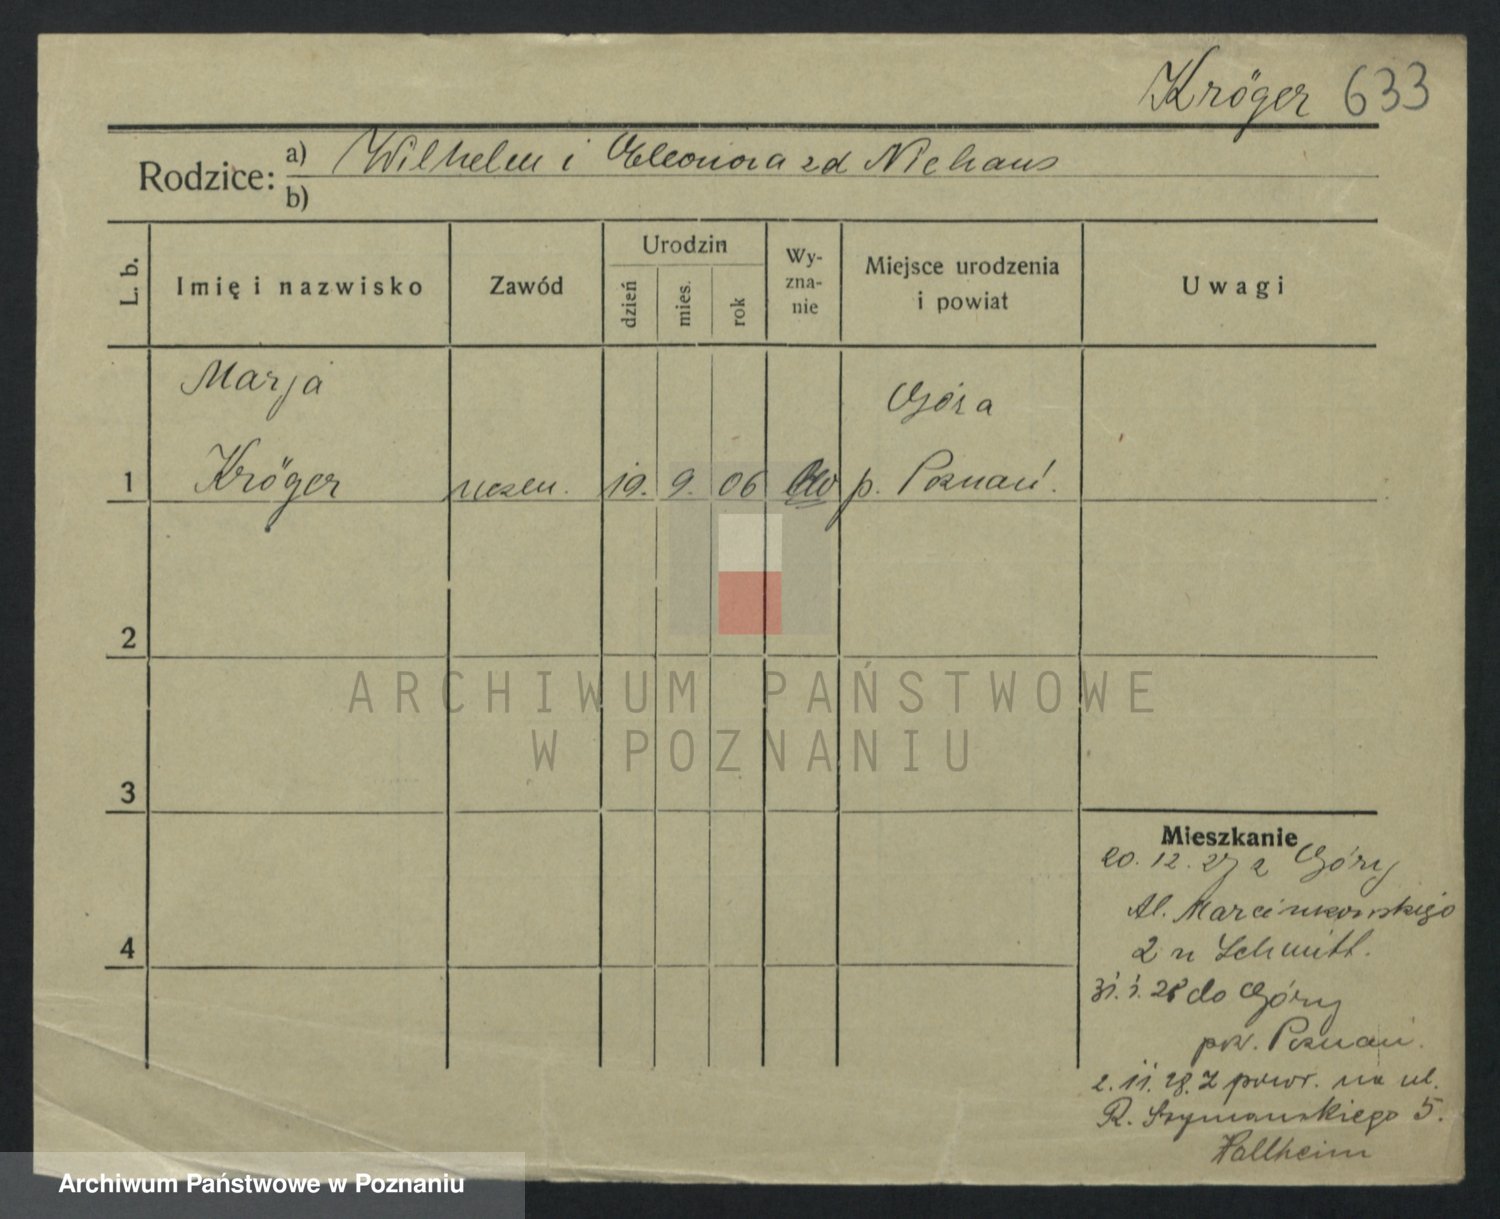 Kröger 633
Rodzice: a) Wilhelm i Eleonora zd Niehaus
b)
L. b.
Imię i nazwisko
Zawód
Urodzin
dzień
mies.
rok
Wy-
zna-
nie
Miejsce urodzenia
i powiat
Uwagi
Marja
Góra
1 Kröger uczen. 19. 9. 06 p. Poznań.
2
3
4
Mieszkanie
20. 12. 27 z Góry
Al. Marcinkowskiego
2 u Schmitt.
31. 1. 28 do Góry
pow. Poznań.
2. 11. 28. Z powr. na ul.
R. Szymańskiego 5.
Hallheim
ARCHIWUM PAŃSTWOWE
W POZNANIU
Archiwum Państwowe w Poznaniu